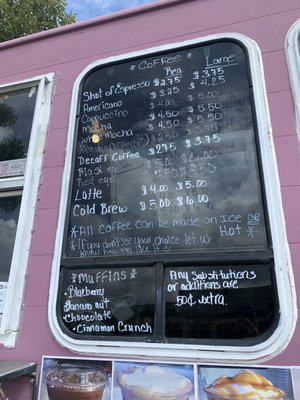 *Coffee*
Reg Large
Shot of Espresso $2.75 $3.75
Americano $3.25 $4.25
Cappuccino $4.00 $5.00
Mocha $4.50 $5.50
White mocha $4.50 $5.50
Decaff Coffee $2.75 $3.75
Black eye
Red eye
Latte $4.00 $5.00
Cold Brew $5.00 $6.00
*All Coffee can be made on Ice or Hot*
*If you don't see your choice let us
Know how you like it
*Muffins*
• Blueberry
Banana nut
Chocolate
• Cinnamon Crunch
Any Substitutions
or additions are
50¢ extra.